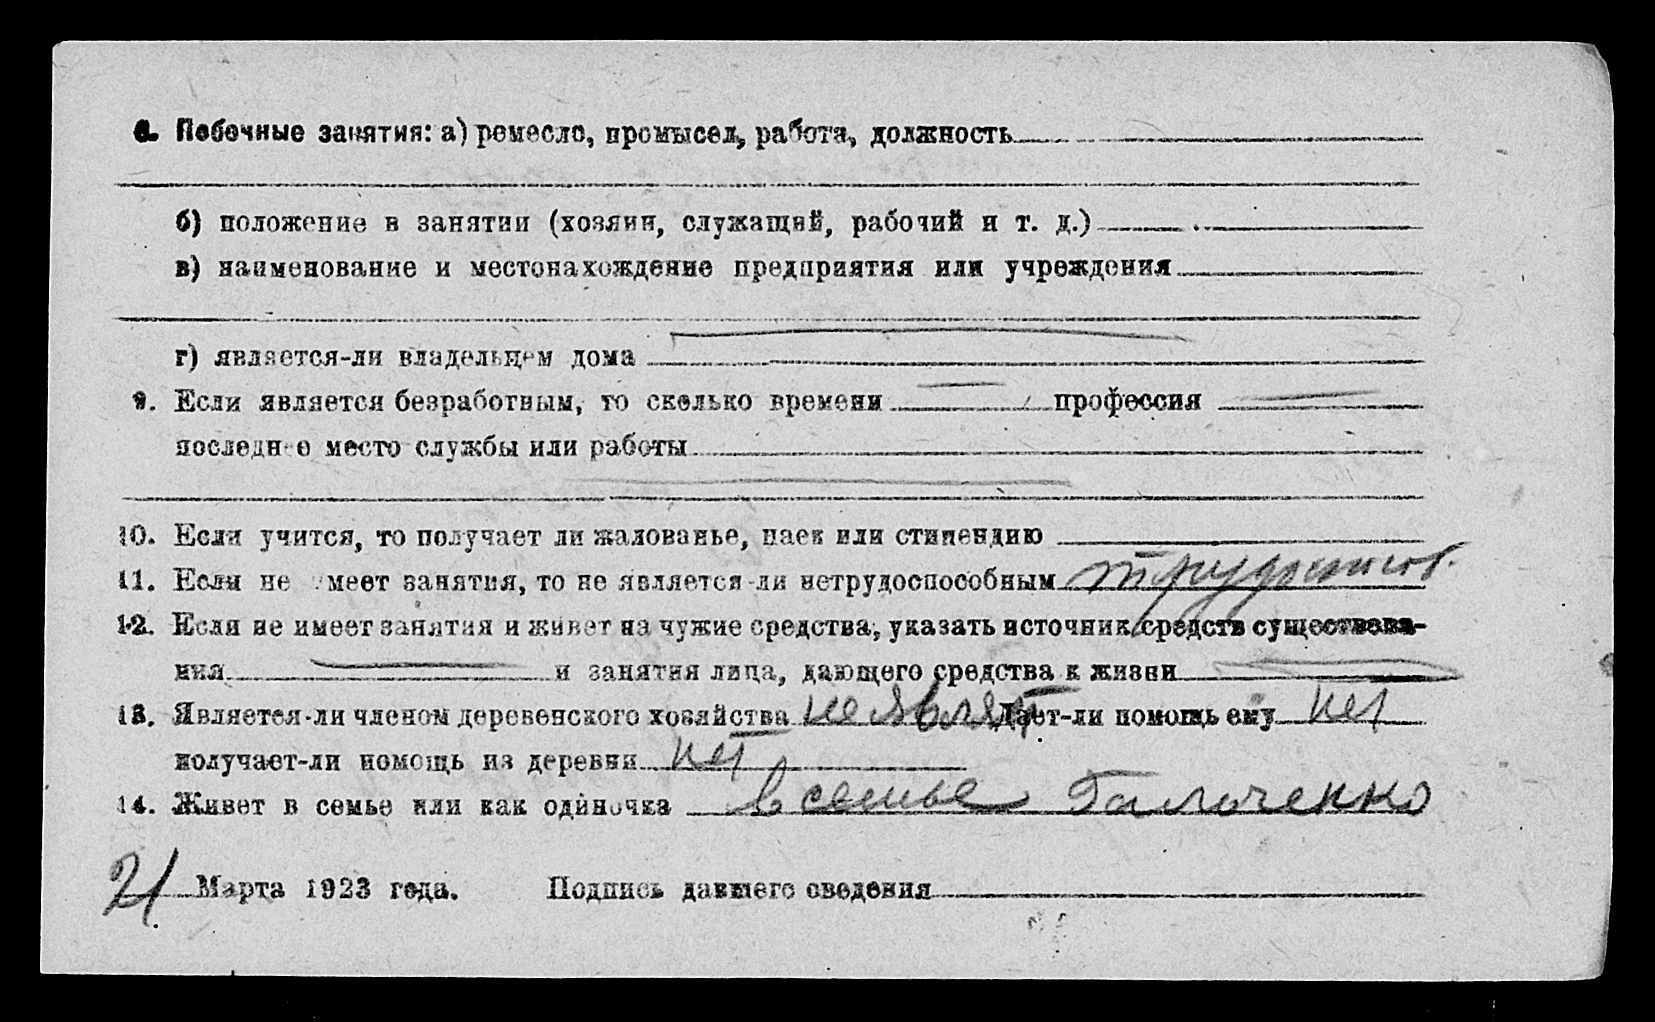 8. Побочные занятия: а) ремесло, промысел, работа, должность
б) положение в занятии (хозяин, служащий, рабочий и т. д.)
в) наименование и местонахождение предприятия или учреждения
г) является-ли владельцем дома
9. Если является безработным, то сколько времени профессия
последнее место службы или работы
10. Если учится, то получает ли жалованье, паек или стипендию
11. Если не имеет занятия, то не является-ли нетрудоспособным трудоспособ.
12. Если не имеет занятия и живет на чужие средства, указать источник средств существова-
ния и занятия лица, дающего средства к жизни
13. Является-ли членом деревенского хозяйства не являет Дает-ли помощь ему нет
получает-ли помощь из деревни нет
14. Живет в семье или как одиночка в семье Галоченко
21 Марта 1923 года. Подпись давшего сведения